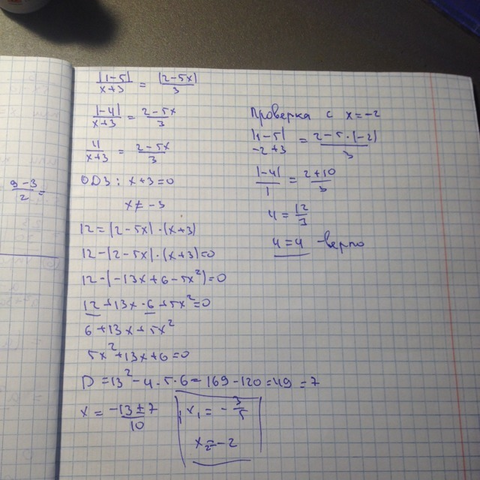 |1-5|/x+3 = (2-5x)/3
|-4|/x+3 = 2-5x/3
4/x+3 = 2-5x/3
ОДЗ: x+3=0
x≠-3
12=(2-5x)·(x+3)
12-(2-5x)·(x+3)=0
12-(-13x+6-5x²)=0
12+13x-6+5x²=0
6+13x+5x²
5x²+13x+6=0
D=13²-4·5·6=169-120=49=7
x=-13±7/10
x₁=-3/5
x₂=-2
Проверка с x=-2
|1-5|/-2+3 = 2-5·(-2)/3
|-4|/1 = 2+10/3
4=12/3
4=4 -верно
9-3/2 =